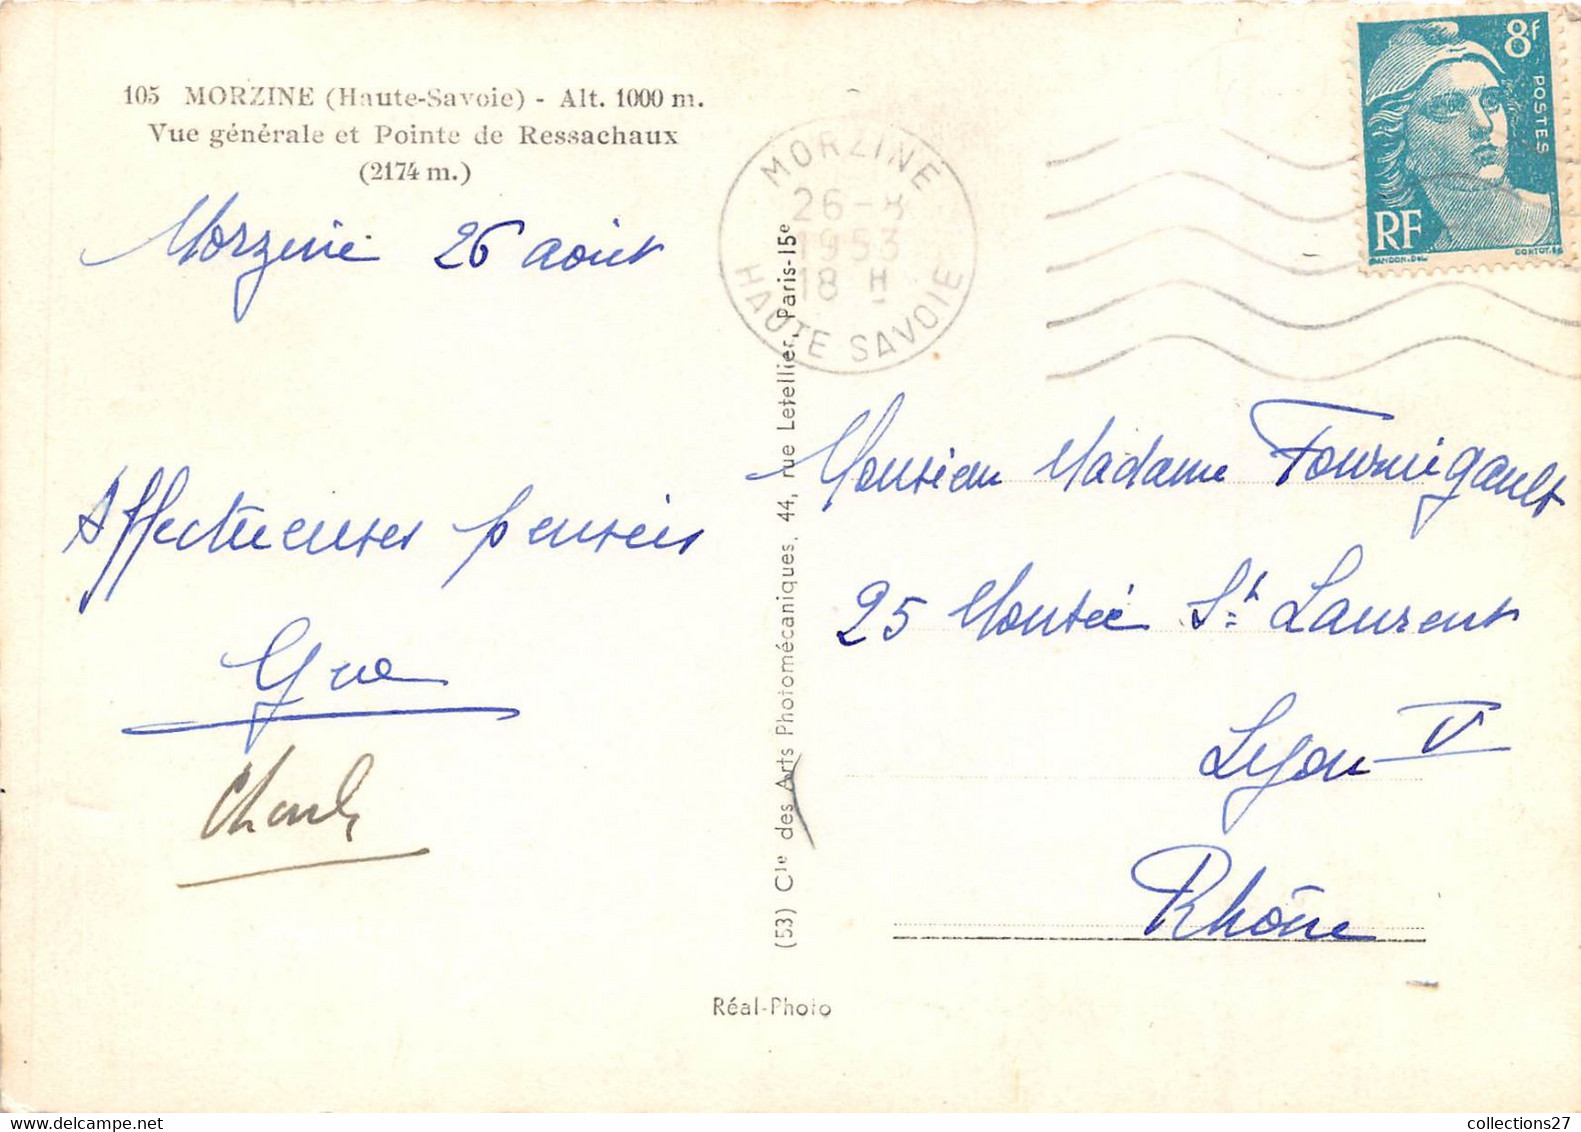 105 MORZINE (Haute-Savoie) - Alt. 1000 m.
Vue générale et Pointe de Ressachaux
(2174 m.)
Morzine 26 août
Affectueuses pensées
Charles
MORZINE
26-8
1953
18 H
HAUTE SAVOIE
8F
POSTES
RF
GANDON.DEL
CORTOT.SC
(53) Cie des Arts Photomécaniques, 44, rue Letellier, Paris-15e
Monsieur Madame Fournigault
25 Montée St Laurent
Lyon V
Rhône
Réal-Photo
collections27